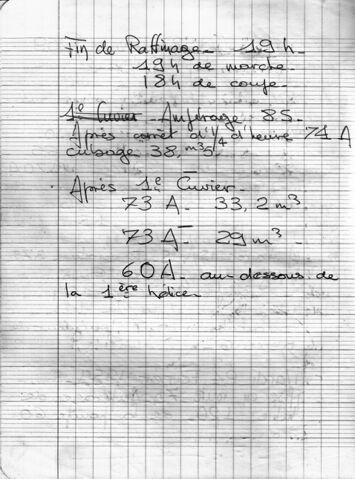 Fin de Raffinage - 19 h -
19 h de marche -
18 h de coupe -
1e Cuvier - Ampérage : 85 -
Après arrêt d'1/4 d'heure 74 A
cubage 38, m³5.
Après 1e Cuvier -
73 A - 33,2 m³
73 A - 29 m³ -
60 A - au-dessous de
la 1ère hélice -